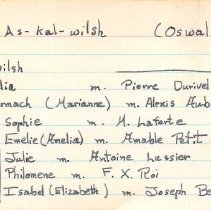 As-kal-wilsh (Oswal
wilsh
lia m. Pierre Durivel
rnach (Marianne) m. Alexis Aub
Sophie m. M. Laforte
Emelie (Amelia) m. Amable Petit
Julie m. Antoine Lussier
Philomene m. F. X. Roi
Isabel (Elizabeth) m. Joseph Be